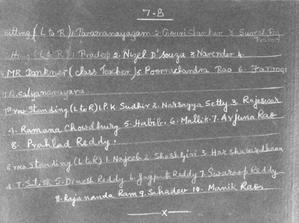 7-B
sitting (L to R) 1. Tararanayagam 2. Gowri Shankar 3. Suresh
(L to R) 1. Pradeep 2. Nigel D'souza 3. Narender 4.
MR Sanknar (class Teacher) 5. Poornachandra Rao 6.
7. G. Satyanarayana.
standing (L to R) 1. P.K Sudhir 2. Narsayya Setty 3. Rajeswar
4. Ramana Chowdhury 5. Habib. 6. Mallik. 7. Arjuna Rao
8. Prahlad Reddy.
row standing (L to R) 1. Najeeb 2. Shashigiri 3. Harshavardhan
4. T. Satish 5. Dinesh Reddy 6. Jagpat Reddy 7. Swaroop Reddy
8. Rajananda Ram 9. Sahadev 10. Manik Rao.
x